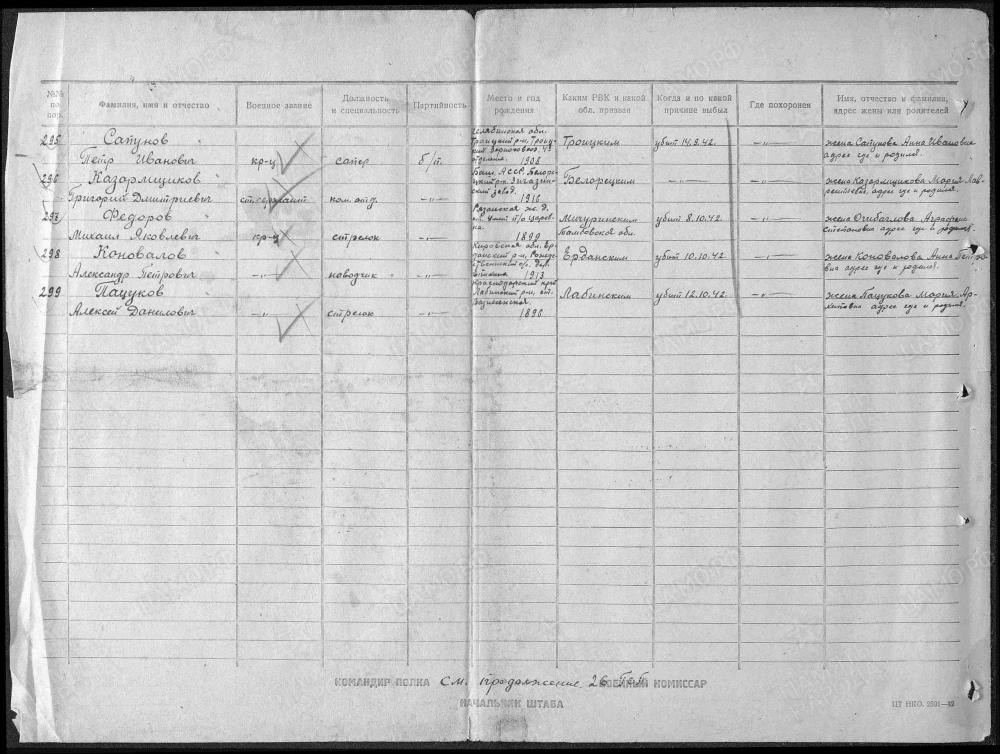 №№ по пор. Фамилия, имя и отчество Военное звание Должность и специальность Партийность Место и год рождения Каким РВК и какой обл. призван Когда и по какой причине выбыл Где похоронен Имя, отчество и фамилия, адрес жены или родителей
295 Сапунов Челябинская обл. Троицкий р-н, Троицким убит 14.9.42. -„- жена Сапунова Анна Ивановна
Петр Иванович кр-ц сапер б/п. отделения. 1908 адрес где и родился.
296 Казармщиков Баш. АССР. Белорецкий р-н. завод. Белорецким -„- жена Казармщикова Мария
Григорий Дмитриевич ст. сержант ком. отд. -„- 1916 адрес где и родился.
297 Федоров Рязанская ж. д. Мичуринским убит 8.10.42 -„- жена Аграфена
Михаил Яковлевич кр-ц стрелок -„- 1899 Тамбовской обл. Степановна адрес где и родился.
298 Коновалов Кировская обл. Ерданским убит 10.10.42 -„- жена Коновалова Анна
Александр Петрович -„- наводчик -„- 1913 адрес где и родился.
299 Пацуков Краснодарский край Лабинский р-н, ст. Лабинским убит 12.10.42 -„- жена Пацукова Мария Архиповна
Алексей Данилович -„- стрелок -„- 1896 адрес где и родился.
КОМАНДИР ПОЛКА см. продолжение ВОЕННЫЙ КОМИССАР
НАЧАЛЬНИК ШТАБА
ЦТ НКО. 2591—42